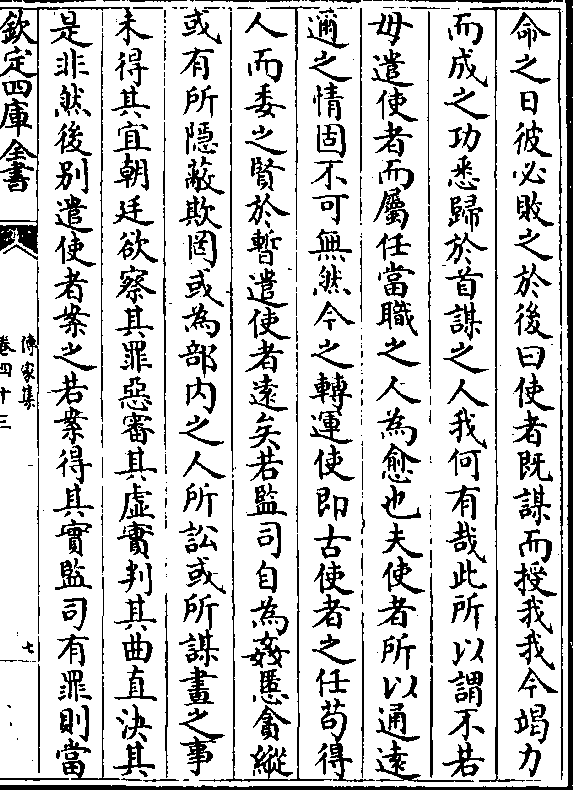 命之日彼必敗之於後曰使者既謀而授我我今竭力
而成之功悉歸於首謀之人我何有哉此所以謂不若
毋遣使者而屬任當職之人為愈也夫使者所以通遠
邇之情固不可無然今之轉運使即古使者之任苟得
人而委之賢於暫遣使者遠矣若監司自為姦慝貪縱
或有所隱蔽欺罔或為部内之人所訟或所謀畫之事
未得其宜朝廷欲察其罪惡審其虚實判其曲直決其
是非然後别遣使者案之若案得其實監司有罪則當
欽定四庫全書
傳家集
卷四十三
七